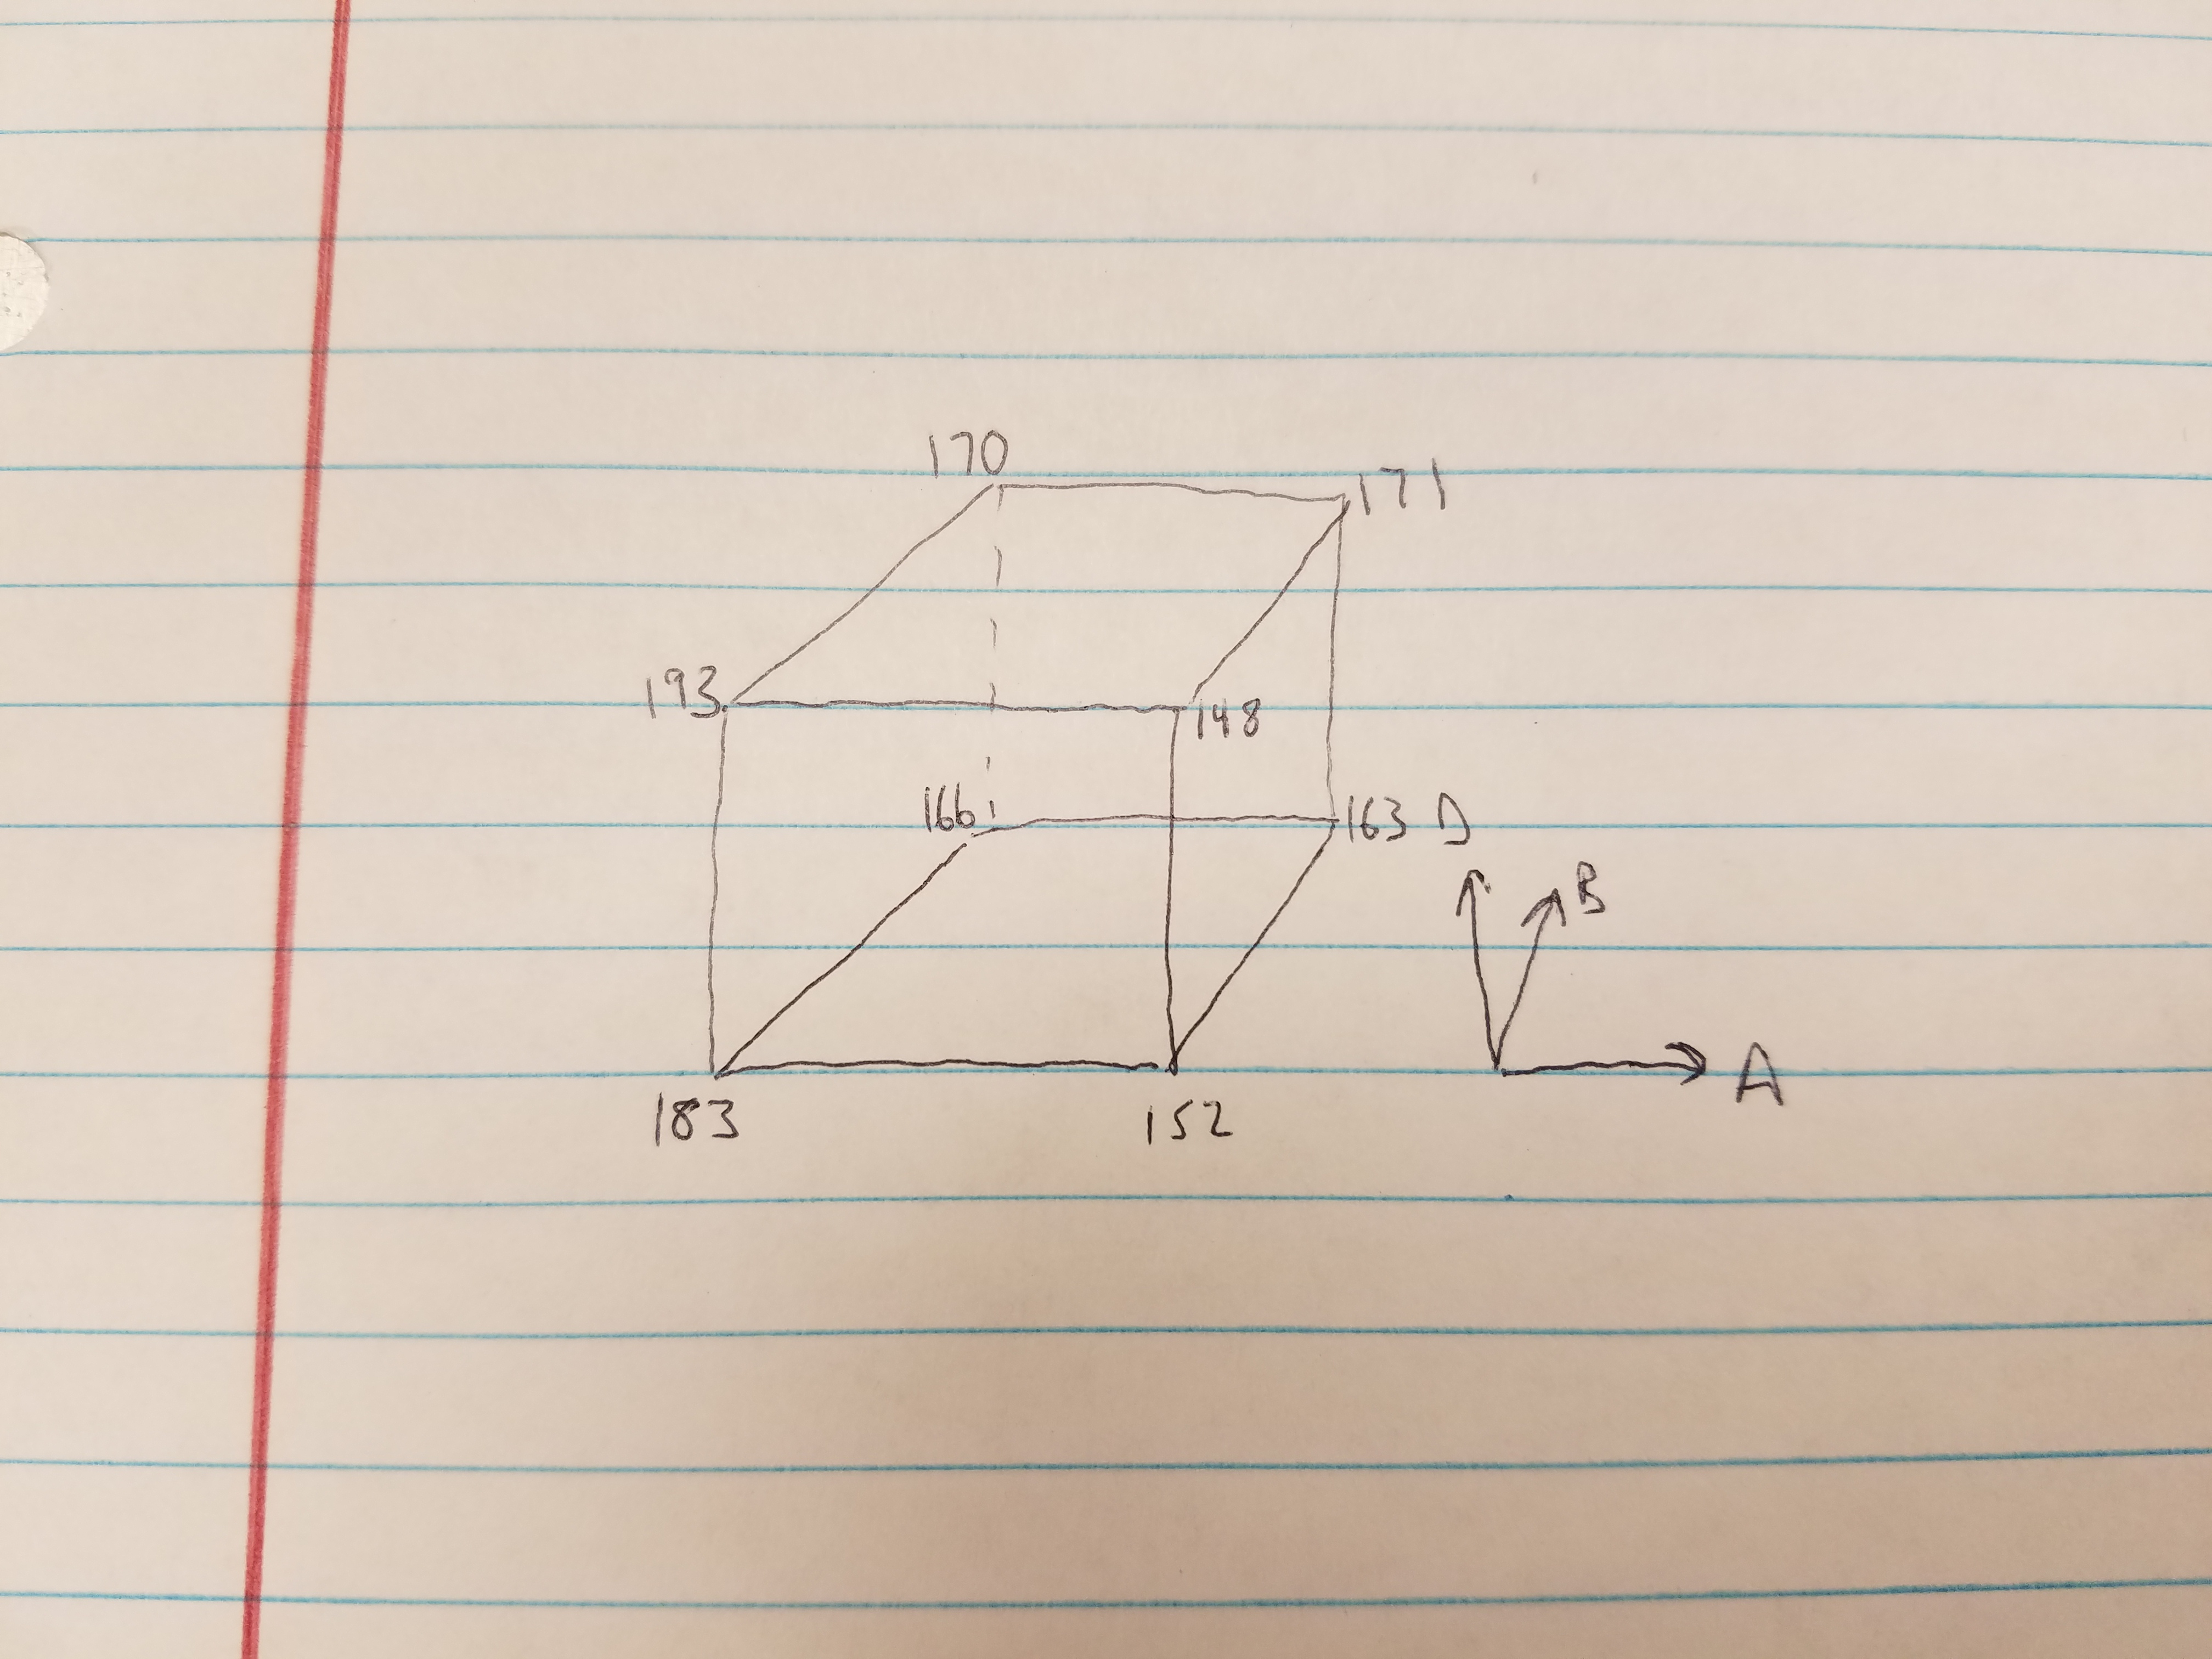 170
171
193
148
166
163 D
B
A
183
152